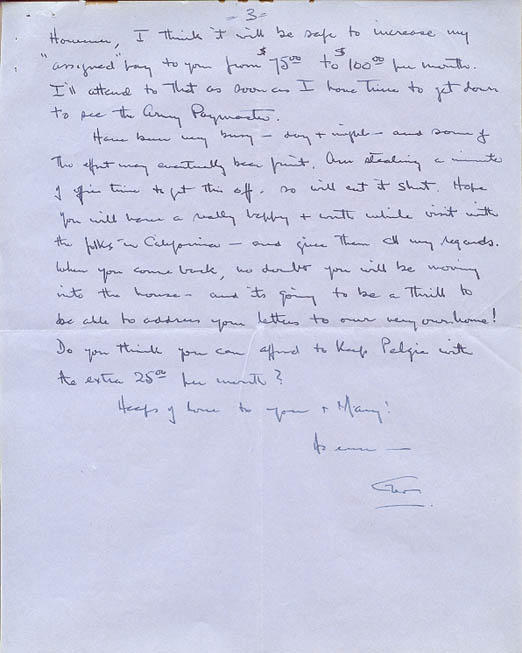 - 3 -
However, I think it will be safe to increase my
"assigned" pay to you from $75.00 to $100.00 per month.
I'll attend to that as soon as I have time to get down
to see the Army Paymaster.
Have been very busy - day + night - and some of
the effort may eventually bear fruit. Am stealing a minute
of office time to get this off. so will cut it short. Hope
you will have a really happy + worth while visit with
the folks in California - and give them all my regards.
When you come back, no doubt you will be moving
into the house - and its going to be a thrill to
be able to address your letters to our very own home!
Do you think you can afford to keep with
the extra 25.00 per month?
Heaps of love to you + Mary!
As ever -